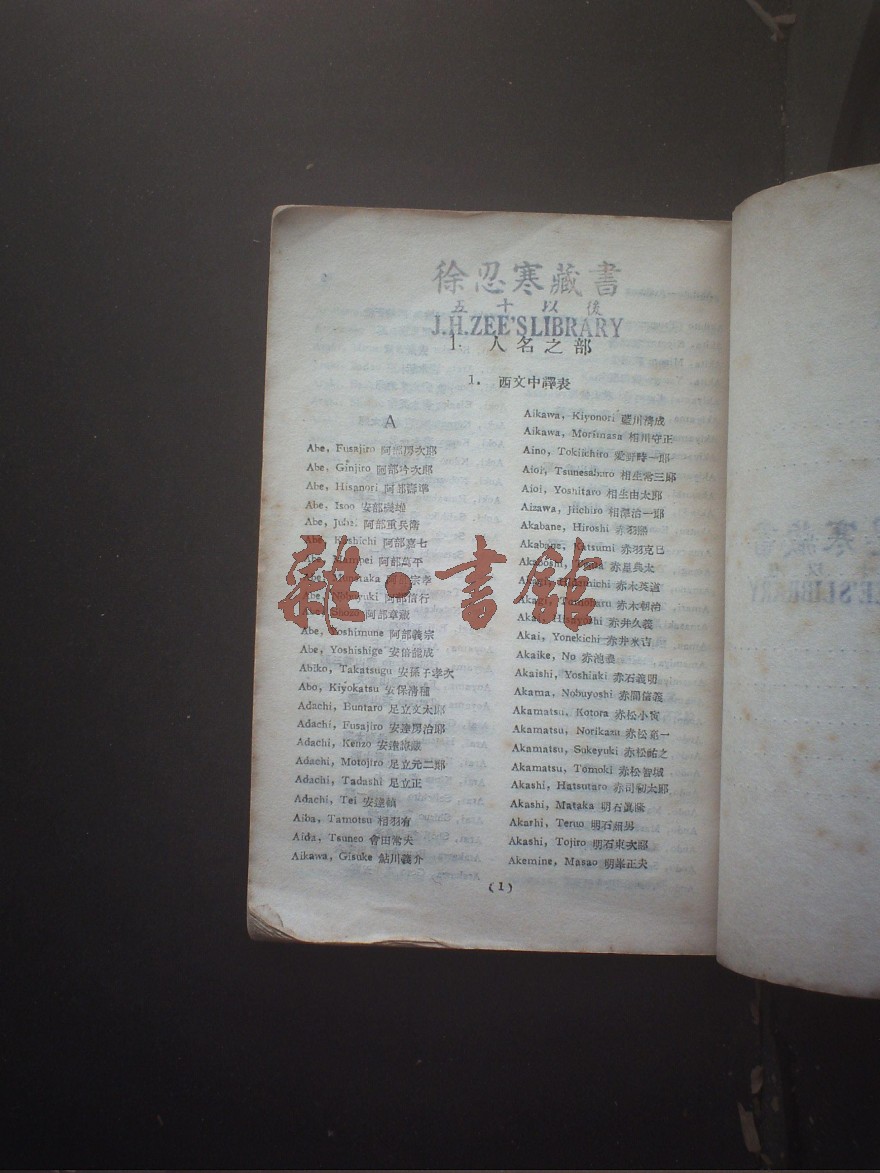 徐忍寒藏書
五十以後
J.H.ZEE'S LIBRARY
1. 人名之部
1. 西文中譯表
A
Abe, Fusajiro 阿部房次郎
Abe, Ginjiro 阿部吟次郎
Abe, Hisanori 阿部壽準
Abe, Isoo 安部磯雄
Abe, Juhei 阿部重兵衞
Abe, Kashichi 阿部嘉七
Abe, Mampei 阿部萬平
Abe, Munetaka 阿部宗孝
Abe, Nobuyuki 阿部信行
Abe, Shozo 阿部章蔵
Abe, Yoshimune 阿部義宗
Abe, Yoshishige 安倍能成
Abiko, Takatsugu 安孫子孝次
Abo, Kiyokatsu 安保清種
Adachi, Buntaro 足立文太郎
Adachi, Fusajiro 安達房治郎
Adachi, Kenzo 安達謙蔵
Adachi, Motojiro 足立元二郎
Adachi, Tadashi 足立正
Adachi, Tei 安達禎
Aiba, Tamotsu 相羽有
Aida, Tsuneo 會田常夫
Aikawa, Gisuke 鮎川義介
Aikawa, Kiyonori 藍川清成
Aikawa, Morimasa 相川守正
Aino, Tokiichiro 愛野時一郎
Aioi, Tsunesaburo 相生常三郎
Aioi, Yoshitaro 相生由太郎
Aizawa, Jiichiro 相澤治一郎
Akabane, Hiroshi 赤羽
Akabane, Katsumi 赤羽克已
Akaboshi, 赤星典太
Akagi, Hidemichi 赤木英道
Akagi, Tomoharu 赤木朝治
Akai, Hisayoshi 赤井久義
Akai, Yonekichi 赤井米吉
Akaike, No 赤池濃
Akaishi, Yoshiaki 赤石義明
Akama, Nobuyoshi 赤間信義
Akamatsu, Kotora 赤松小寅
Akamatsu, Norikazu 赤松範一
Akamatsu, Sukeyuki 赤松祐之
Akamatsu, Tomoki 赤松智城
Akashi, Hatsutaro 赤司初太郎
Akashi, Mataka 明石眞隆
Akashi, Teruo 明石照男
Akashi, Tojiro 明石東次郎
Akemine, Masao 明峯正夫
(1)
雜·書館